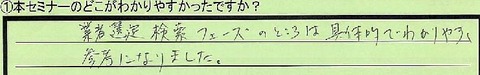 ①本セミナーのどこがわかりやすかったですか?
業者選定 検索フェーズのところは具体的でわかりやすく
参考になりました。